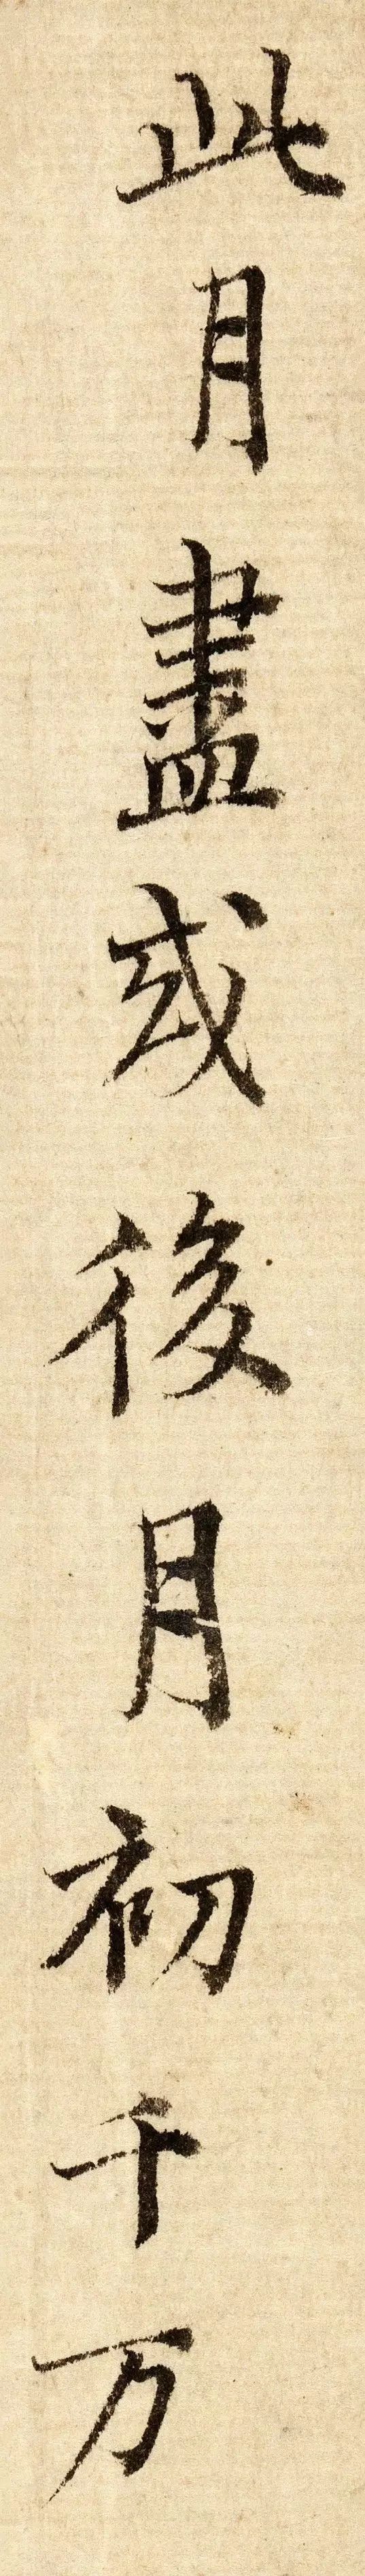 此月盡或後月初千万